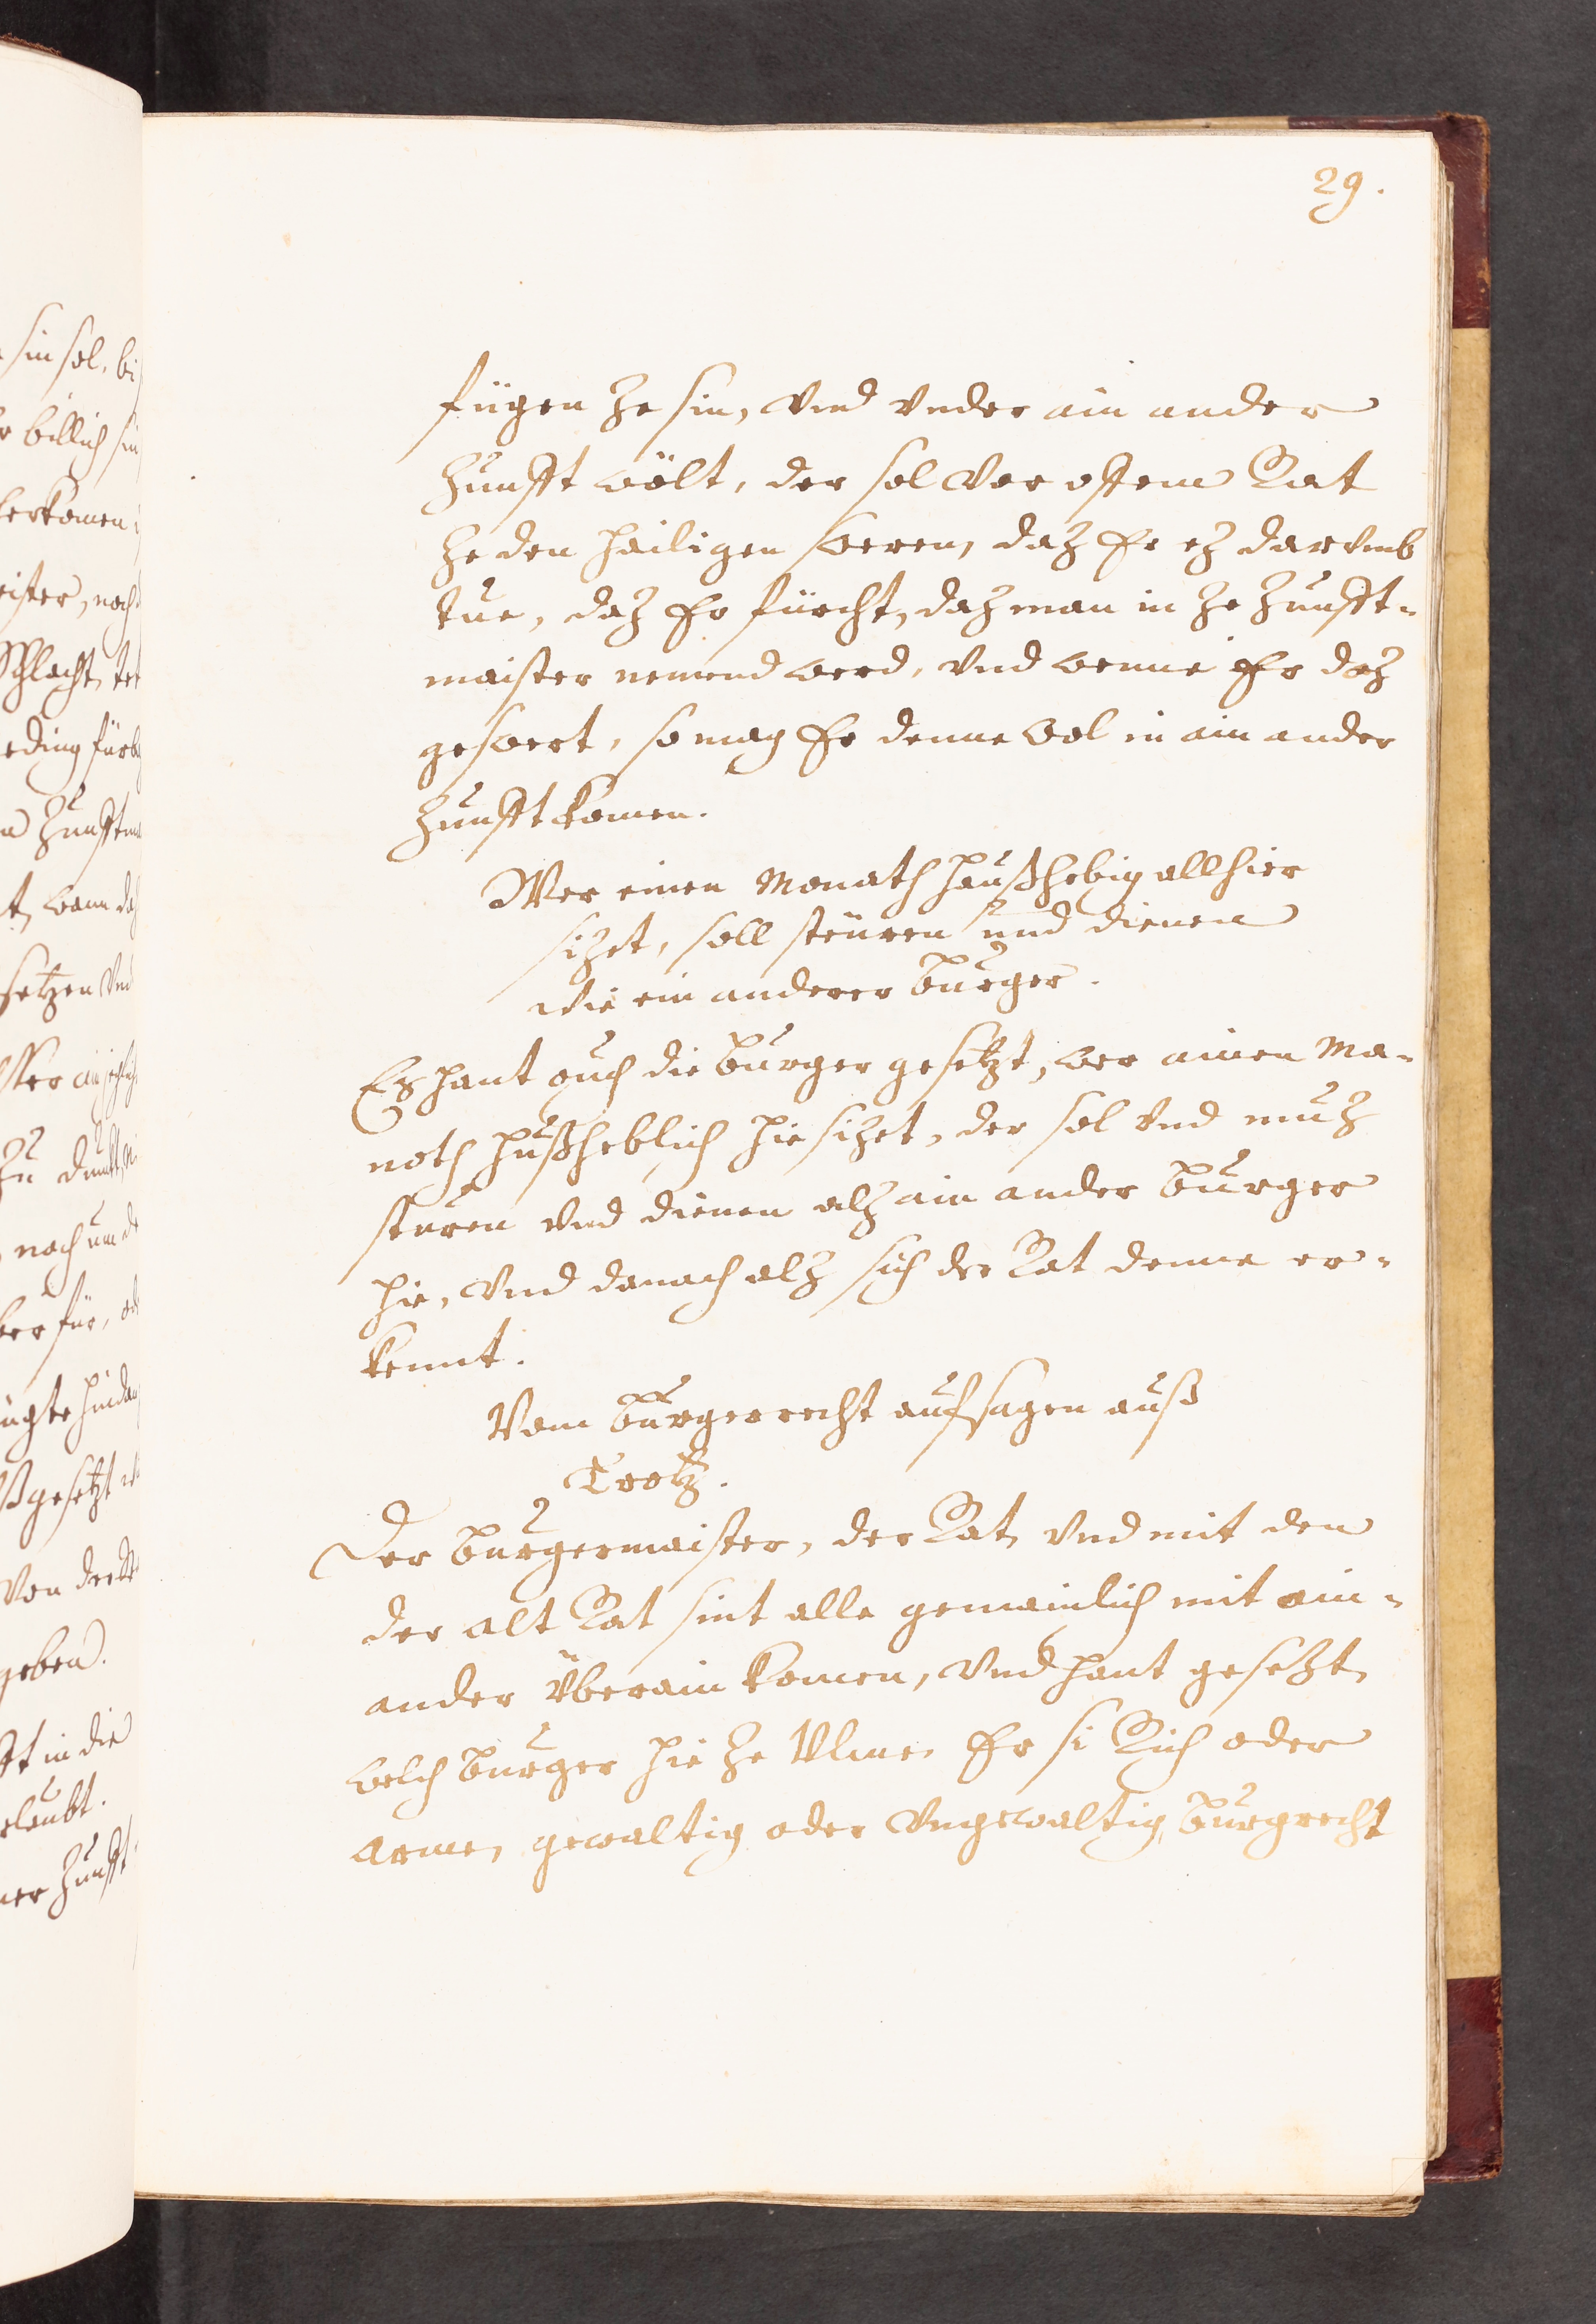 29.
fügen ze sin, vnd vnder ain ander
Zunfft wölt, der sol vor offem Rat
ze den hailigen sweren, daz Er ez darvmb
tue, daz Er fürcht, daz man in ze Zunfft-
maister nemend werd, vnd wenne Er daz
geswert, so mag Er denne wol in ain ander
Zunfft komen.
Wer einen Monath haußhebig allhier
sizet, soll steüren und dienen
wie ein anderer burger.
Ez hant ouch die burger gesetzt, wer ainen Ma-
noth hußheblich hie sizet, der sol vnd muz
sturen vnd dienen alz ain ander burger
hie, vnd danach alz sich der Rat denne er-
kennt.
Vom burgerrecht aufsagen auß
Trotz.
Der burgermaister, der Rat, vnd mit den
der alt Rat sint alle gemainlich mit ain-
ander überain komen, vnd hant gesetzt,
welch burger hie ze Ulme, Er si Rich oder
arme, gewaltig oder vngewaltig, burgrecht
sin sol, bi
billich sin
herkomen
eister, noch
Schlacht, tet
eding fürb
Zunfftm
t, wann da
setzen vnd
zu
noch um d
ber für, od
ügte hindan
ßgesetzt
von der
geben.
in die
rlaubt.
ner Zunfft